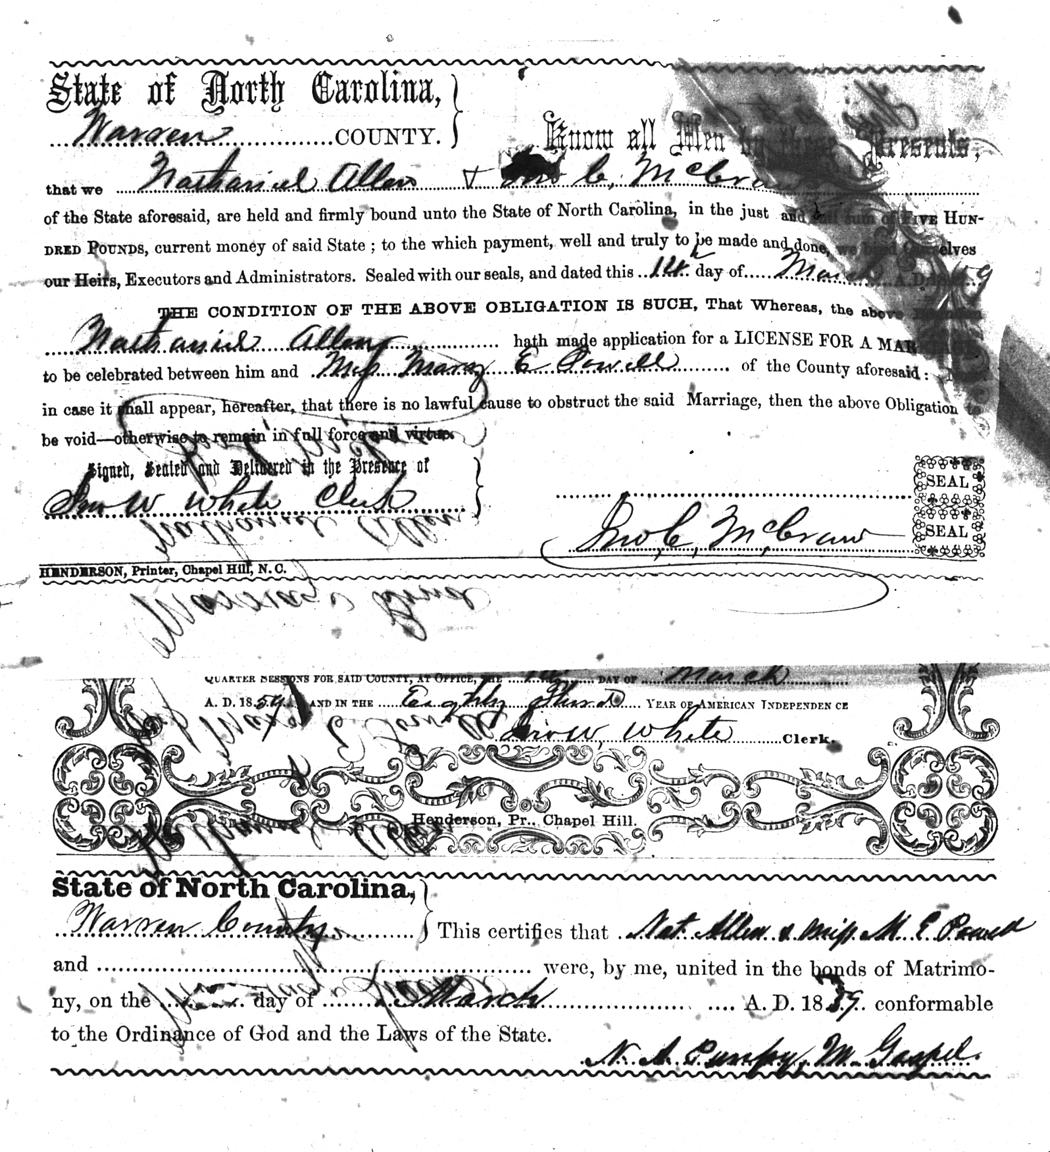 State of North Carolina,
Warren COUNTY.
Know all Men by these Presents,
that we Nathaniel Allen & Jno C, McCraw
of the State aforesaid, are held and firmly bound unto the State of North Carolina, in the just and full sum of FIVE HUN-
DRED POUNDS, current money of said State ; to the which payment, well and truly to be made and done, we bind ourselves
our Heirs, Executors and Administrators. Sealed with our seals, and dated this day of March A.D.
THE CONDITION OF THE ABOVE OBLIGATION IS SUCH, That Whereas, the above
Nathaniel Allen hath made application for a LICENSE FOR A MARRIAGE
to be celebrated between him and Miss Mary E Powell of the County aforesaid :
in case it shall appear, hereafter, that there is no lawful cause to obstruct the said Marriage, then the above Obligation to
be void—otherwise to remain in full force and virtue.
Signed, Sealed and Delivered in the Presence of
Jno W White Clerk
SEAL
Jno, C, McCraw
SEAL
Nathaniel Allen
HENDERSON, Printer, Chapel Hill, N. C.
Marriage Bond
QUARTER SESSIONS FOR SAID COUNTY, AT OFFICE, THE DAY OF March
A. D. 1859 AND IN THE Eighty Third YEAR OF AMERICAN INDEPENDENCE
Jno W, White Clerk.
Henderson, Pr., Chapel Hill.
State of North Carolina,
Warren County. This certifies that Nat. Allen & Miss. M. E Powell
and were, by me, united in the bonds of Matrimo-
ny, on the day of March A. D. 1859. conformable
to the Ordinance of God and the Laws of the State.
N. A. M. Gospel.